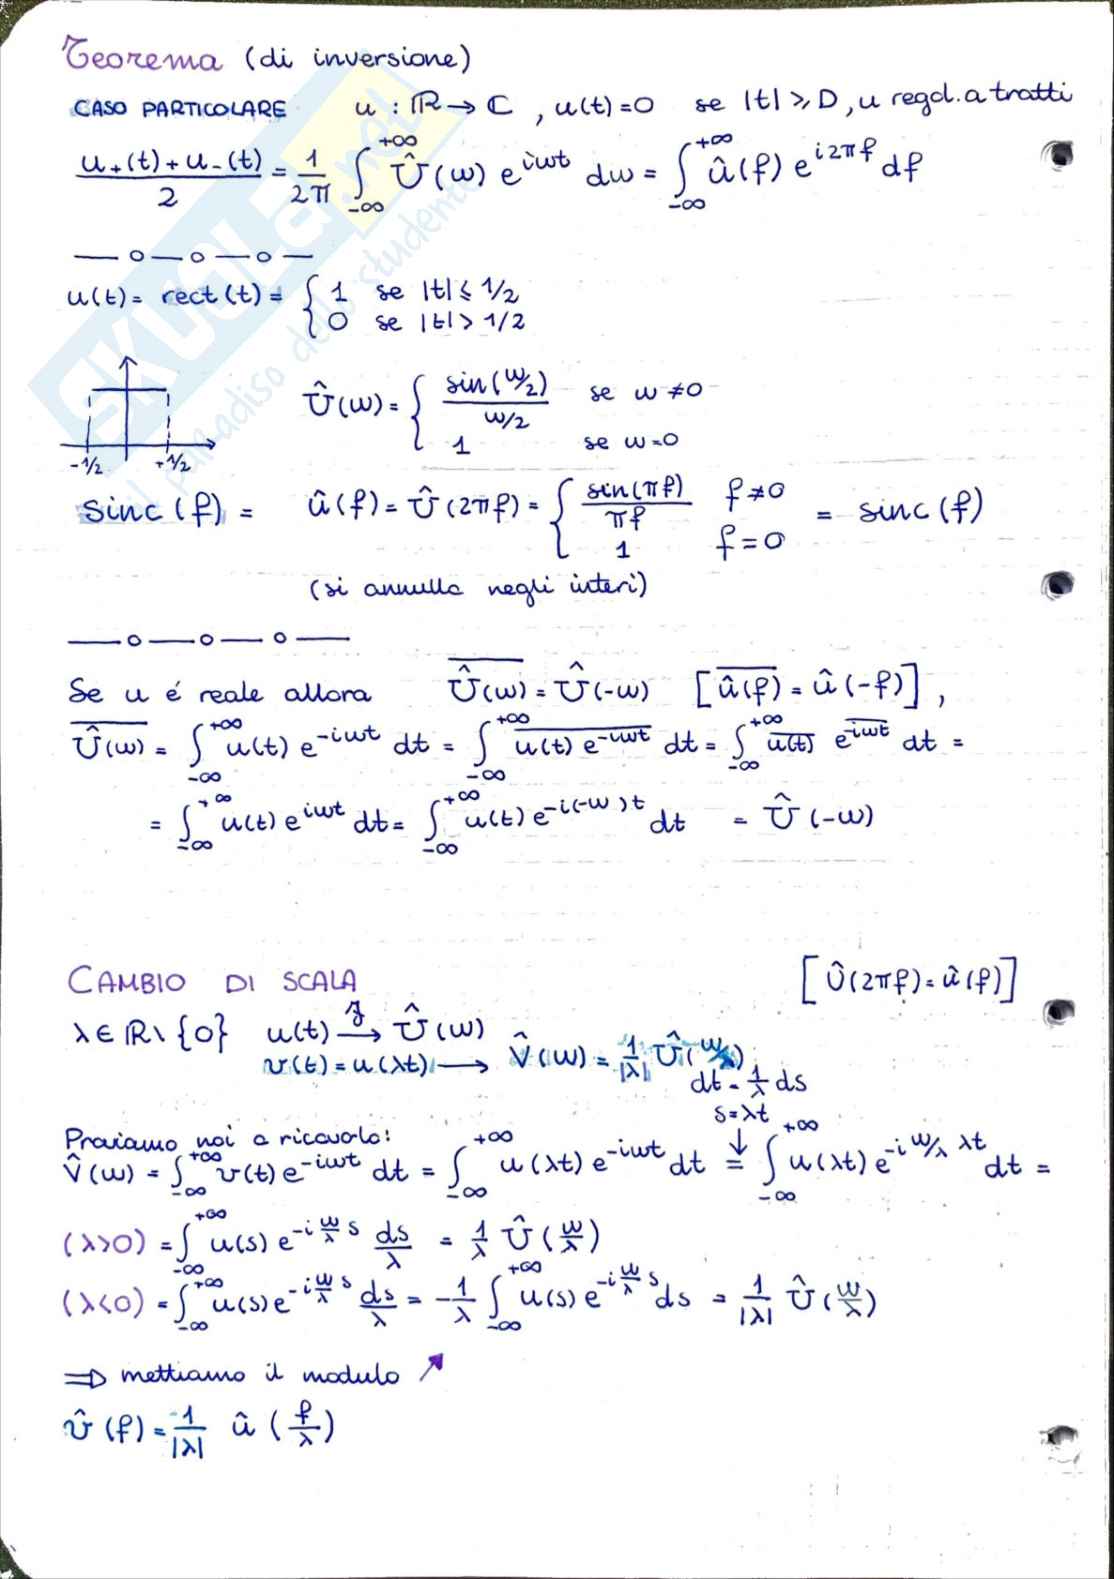 Teorema (di inversione)
CASO PARTICOLARE u : ℝ → ℂ , u(t)=0 se |t| ≥ D, u regol. a tratti
(u₊(t)+u₋(t))/2 = 1/2π ∫_{-∞}^{+∞} Û(ω) e^{iωt} dω = ∫_{-∞}^{+∞} û(f) e^{i2πf} df
— o — o — o —
u(t) = rect(t) = { 1 se |t| ≤ 1/2
0 se |t| > 1/2
Û(ω) = { sin(ω/2)/(ω/2) se ω ≠ 0
1 se ω=0
-1/2 +1/2
sinc(f) = û(f) = Û(2πf) = { sin(πf)/πf f≠0 = sinc(f)
1 f=0
(si annulla negli interi)
— o — o — o —
Se u é reale allora \overline{Û(ω)} = Û(-ω) [\overline{û(f)} = û(-f)] ,
\overline{Û(ω)} = ∫_{-∞}^{+∞} u(t) e^{-iωt} dt = ∫_{-∞}^{+∞} \overline{u(t) e^{-iωt}} dt = ∫_{-∞}^{+∞} \overline{u(t)} \overline{e^{-iωt}} dt =
= ∫_{-∞}^{+∞} u(t) e^{iωt} dt = ∫_{-∞}^{+∞} u(t) e^{-i(-ω)t} dt = Û(-ω)
CAMBIO DI SCALA [Û(2πf) = û(f)]
λ ∈ ℝ\{0} u(t) →^ℱ Û(ω)
v(t) = u(λt) → V̂(ω) = 1/|λ| Û(ω/λ)
dt = 1/λ ds
s=λt
Proviamo noi a ricavarlo:
V̂(ω) = ∫_{-∞}^{+∞} v(t) e^{-iωt} dt = ∫_{-∞}^{+∞} u(λt) e^{-iωt} dt =↓ ∫_{-∞}^{+∞} u(λt) e^{-i ω/λ λt} dt =
(λ>0) = ∫_{-∞}^{+∞} u(s) e^{-i ω/λ s} ds/λ = 1/λ Û(ω/λ)
(λ<0) = ∫_{-∞}^{+∞} u(s) e^{-i ω/λ s} ds/λ = -1/λ ∫_{-∞}^{+∞} u(s) e^{-i ω/λ s} ds = 1/|λ| Û(ω/λ)
⇒ mettiamo il modulo ↗
v̂(f) = 1/|λ| û(f/λ)
SKUOLA.net
il paradiso dello studente